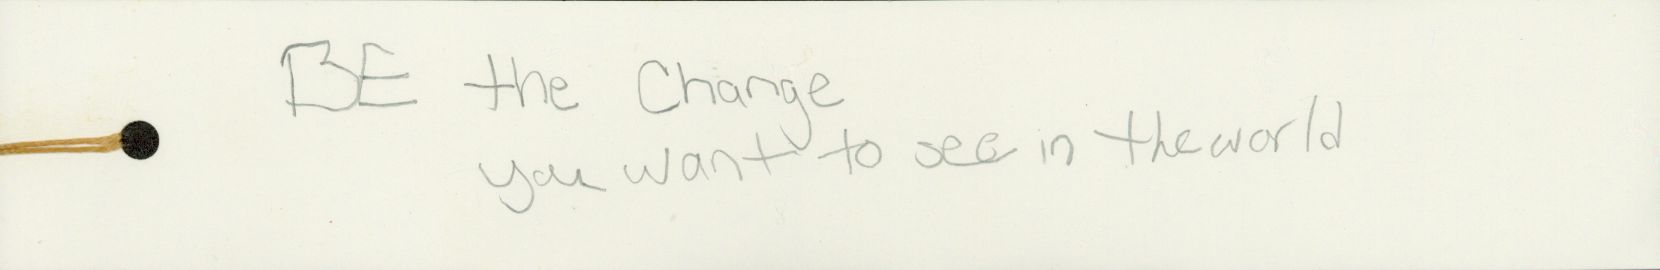 BE the Change
you want to see in the world